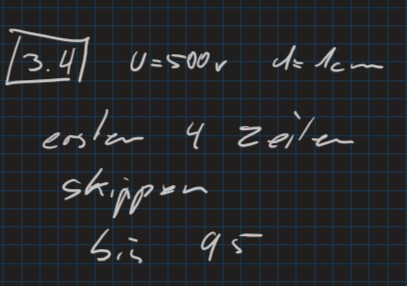 3.4 U=500v d=1cm
ersten 4 Zeilen
skippen
bis 95